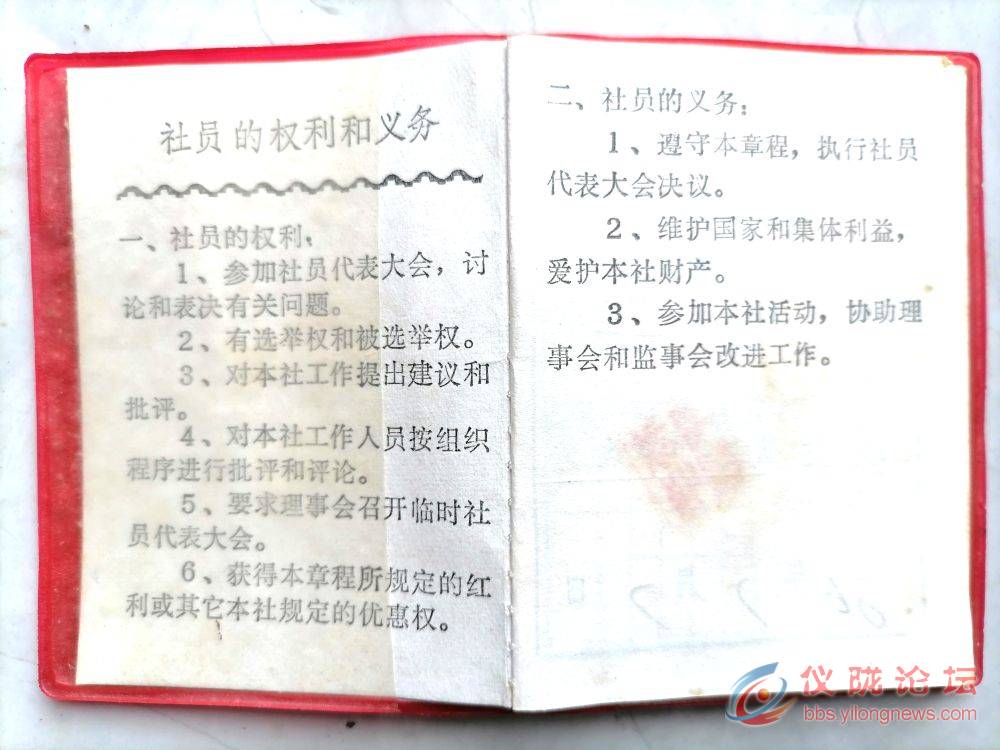 社员的权利和义务
一、社员的权利：
1、参加社员代表大会，讨
论和表决有关问题。
2、有选举权和被选举权。
3、对本社工作提出建议和
批评。
4、对本社工作人员按组织
程序进行批评和评论。
5、要求理事会召开临时社
员代表大会。
6、获得本章程所规定的红
利或其它本社规定的优惠权。
二、社员的义务：
1、遵守本章程，执行社员
代表大会决议。
2、维护国家和集体利益，
爱护本社财产。
3、参加本社活动，协助理
事会和监事会改进工作。
仪陇论坛
bbs.yilongnews.com